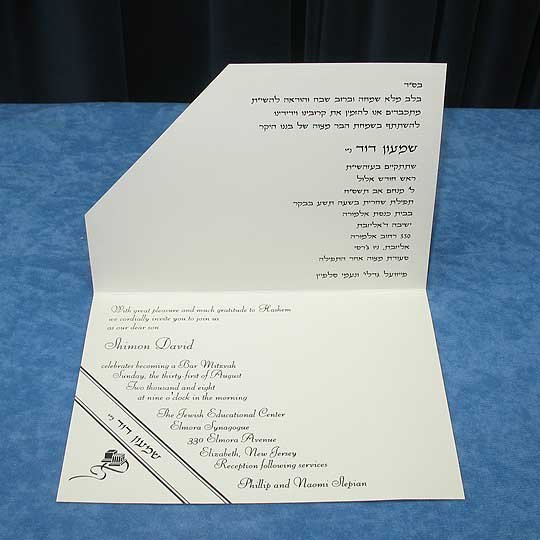 בס״ד
בלב מלא שמחה וברוב שבח והודאה להשי״ת
מתכבדים אנו להזמין את קרובינו וידידינו
להשתתף בשמחת הבר מצוה של בננו היקר
שמעון דוד ני״
שתתקיים בעזהשי״ת
ראש חודש אלול
ל׳ מנחם אב תשס״ח
תפילת שחרית בשעה תשע בבקר
בבית כנסת אלמורה
ישיבה ד׳אליזבט
330 רחוב אלמורה
אליזבט, ניו ג׳רסי
סעודת מצוה אחר התפילה
פייוועל גדלי׳ ונעמי סלפיין
With great pleasure and much gratitude to Hashem
we cordially invite you to join us
as our dear son
Shimon David
celebrates becoming a Bar Mitzvah
Sunday, the thirty-first of August
Two thousand and eight
at nine o'clock in the morning
The Jewish Educational Center
Elmora Synagogue
330 Elmora Avenue
Elizabeth, New Jersey
Reception following services
Phillip and Naomi Slepian
שמעון דוד ני״